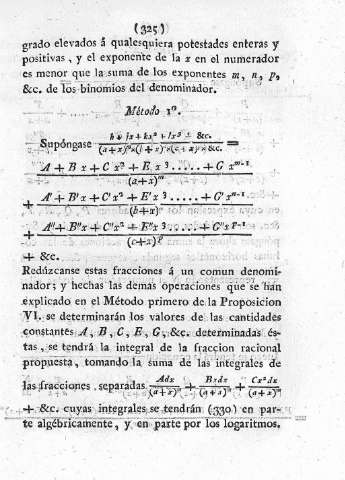 (325)
grado elevados á qualesquiera potestades enteras y
positivas, y el exponente de la x en el numerador
es menor que la suma de los exponentes m, n, p,
&c. de los binomios del denominador.
Método 1º.
Supóngase (h + ix + kx² + lx³ + &c.) / ((a+x)ᵐ × (b+x)ⁿ × (c+x)ᵖ × &c.) =
(A + B x + C x² + E x³ ..... + G xᵐ⁻¹) / (a+x)ᵐ
+ (A' + B'x + C'x² + E'x³ ..... + G'xⁿ⁻¹) / (b+x)ⁿ
+ (A" + B"x + C"x² + E"x³ ..... + G"xᵖ⁻¹) / (c+x)ᵖ
+ &c.
Redúzcanse estas fracciones á un comun denomi-
nador; y hechas las demas operaciones que se han
explicado en el Método primero de la Proposicion
VI. se determinarán los valores de las cantidades
constantes A, B, C, E, G, &c. determinadas és-
tas, se tendrá la integral de la fraccion racional
propuesta, tomando la suma de las integrales de
las fracciones separadas Adx/(a+x)ᵐ + Bxdx/(a+x)ᵐ + Cx²dx/(a+x)ᵐ
+ &c. cuyas integrales se tendrán (330) en par-
te algébricamente, y en parte por los logaritmos.